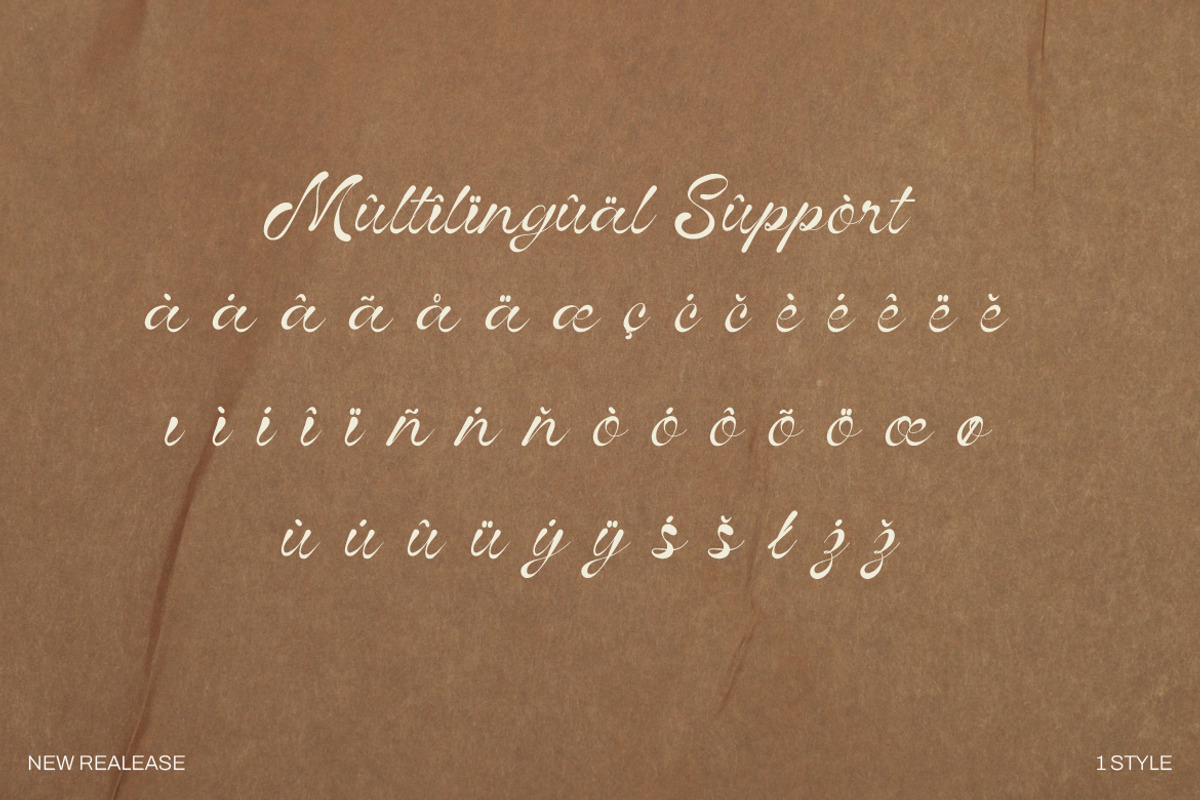 Mûltîlïngûäl Sûppòrt
à á â ã å ä æ ç ć č è é ê ë ě
ı ì í î ï ñ ń ň ò ó ô õ ö œ ø
ù ú û ü ý ÿ ś š ł ź ž
NEW REALEASE
1 STYLE